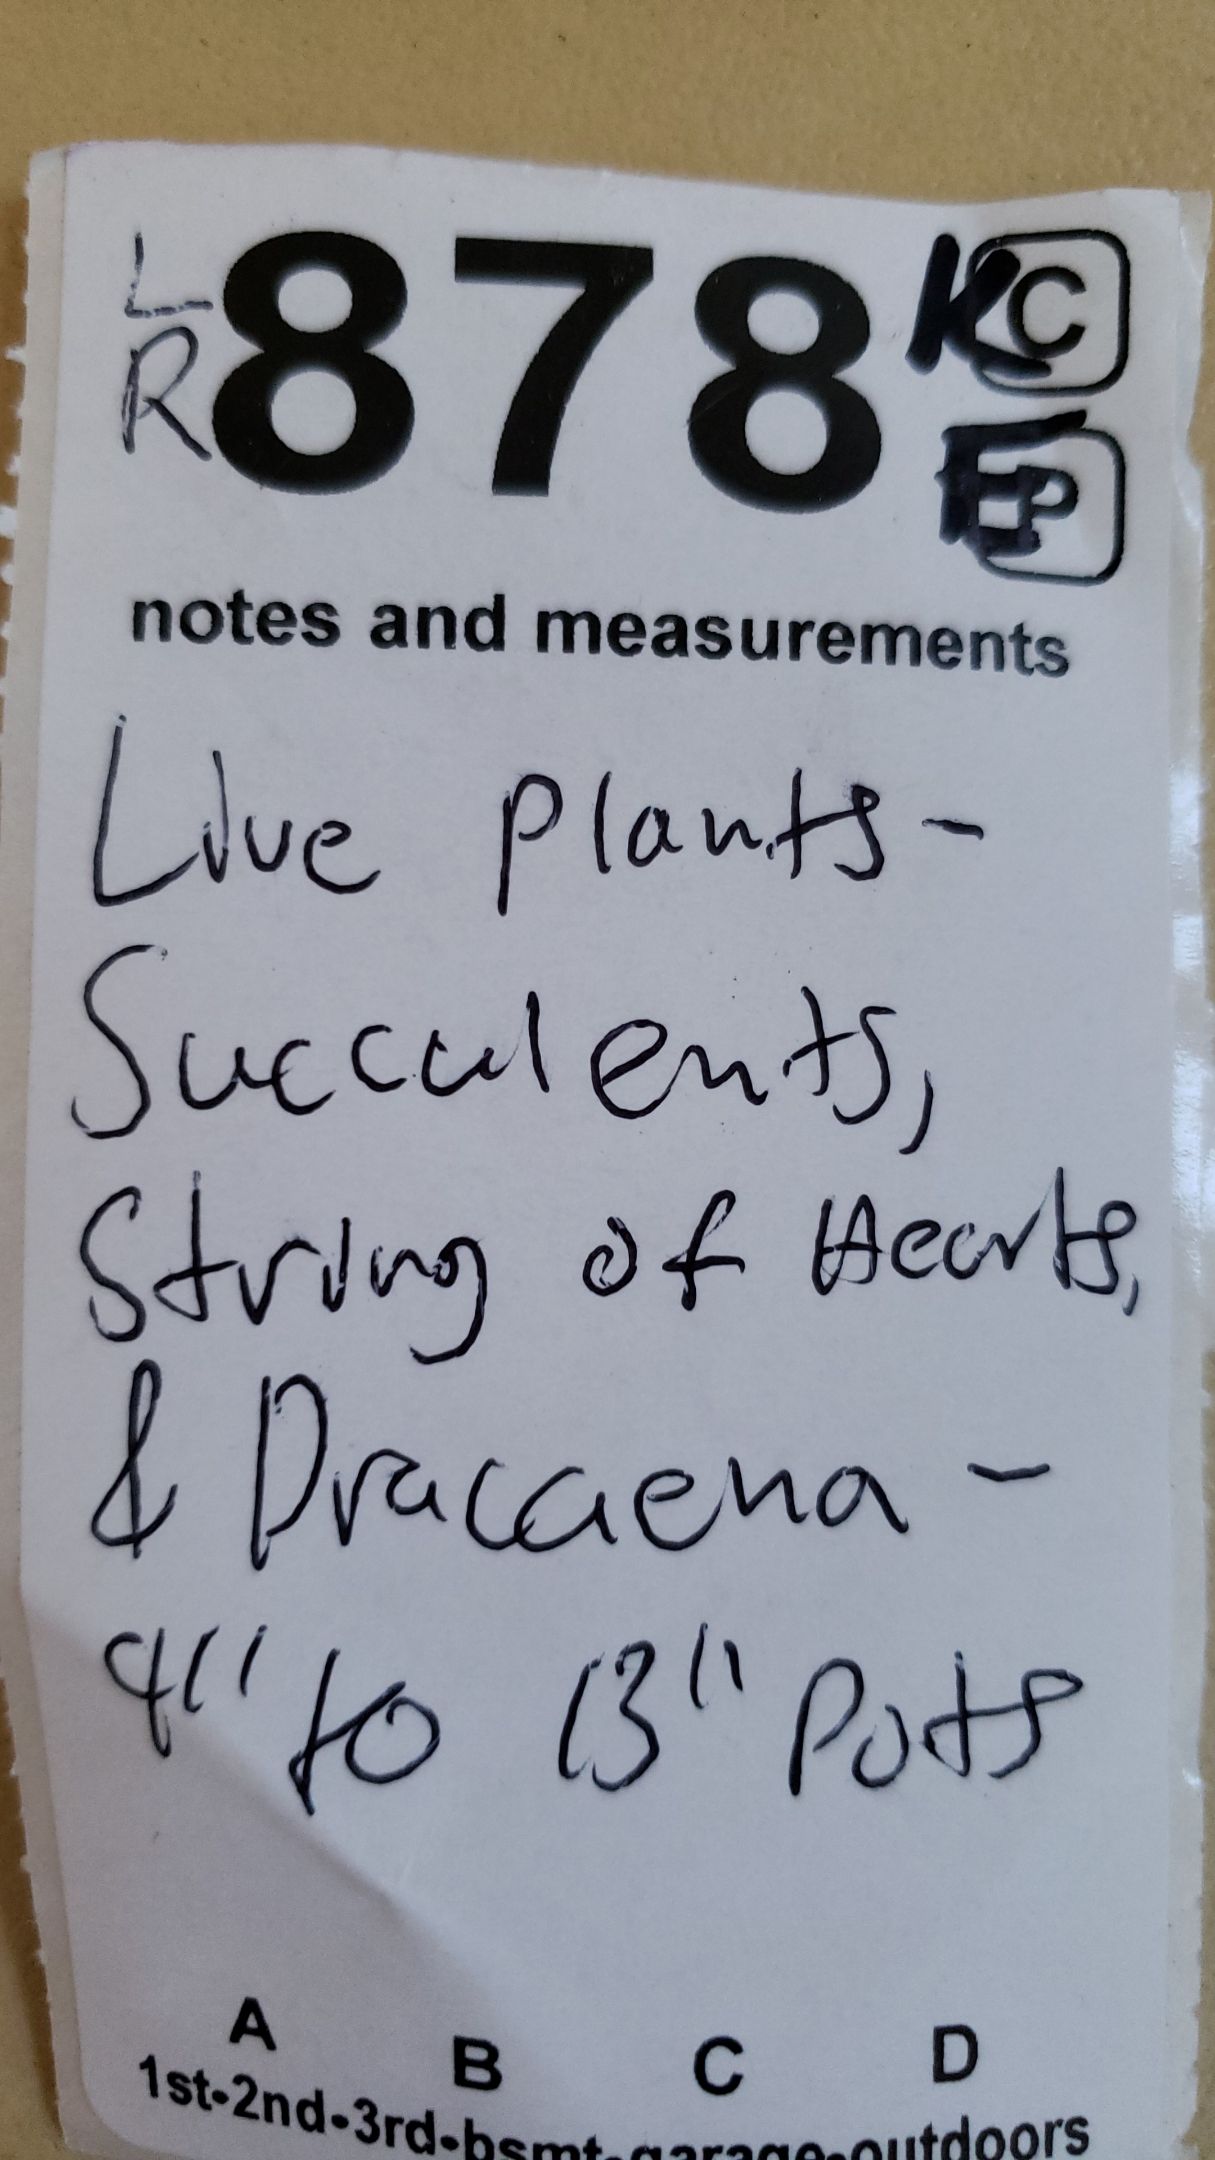 L
R
878
KC
EP
notes and measurements
Live plants-
Succulents,
String of Hearts,
& Dracaena -
4" to 13" Pots
A B C D
1st-2nd-3rd-bsmt-garage-outdoors